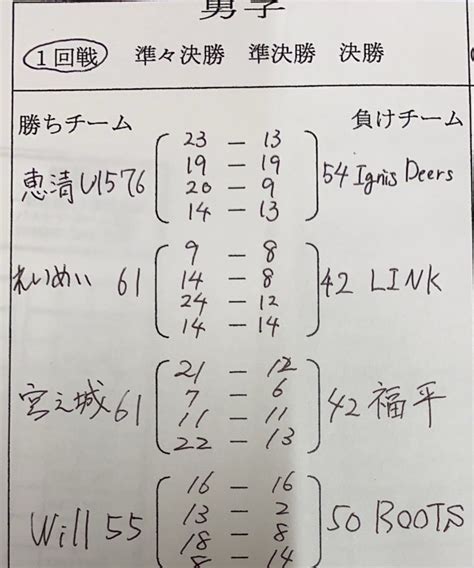 男子
1回戦 準々決勝 準決勝 決勝
勝ちチーム 負けチーム
23 — 13
19 — 19
恵清U15 76 54 Ignis Deers
20 — 9
14 — 13
9 — 8
れいめい 61 14 — 8 42 LINK
24 — 12
14 — 14
21 — 12
7 — 6
宮之城 61 42 福平
11 — 11
22 — 13
16 — 16
13 — 2
Will 55 50 ROOTS
18 — 8
8 — 14